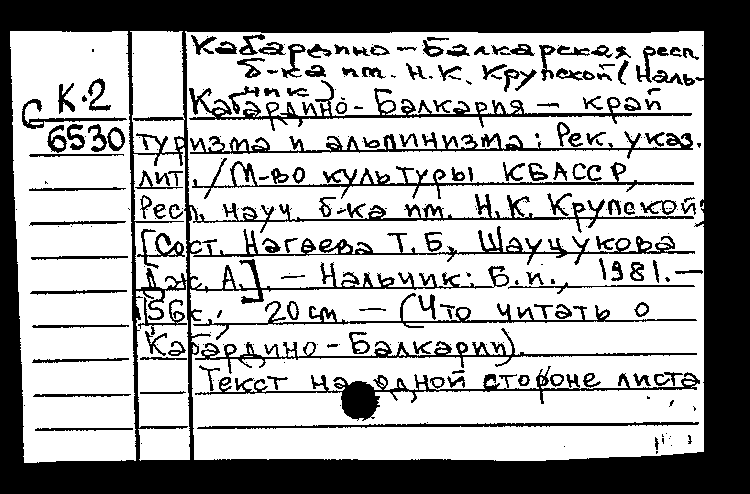 Кабардино-Балкарская респ.
б-ка им. Н.К. Крупской (Наль-
чик)
С К.2
6530
Кабардино-Балкария — край
туризма и альпинизма: Рек. указ.
лит. / М-во культуры КБАССР,
Респ. науч. б-ка им. Н.К. Крупской;
[Сост. Нагаева Т.Б., Шауцукова
Дж. А.]. — Нальчик: Б.и., 1981. —
36 с.; 20 см. — (Что читать о
Кабардино-Балкарии).
Текст на одной стороне листа